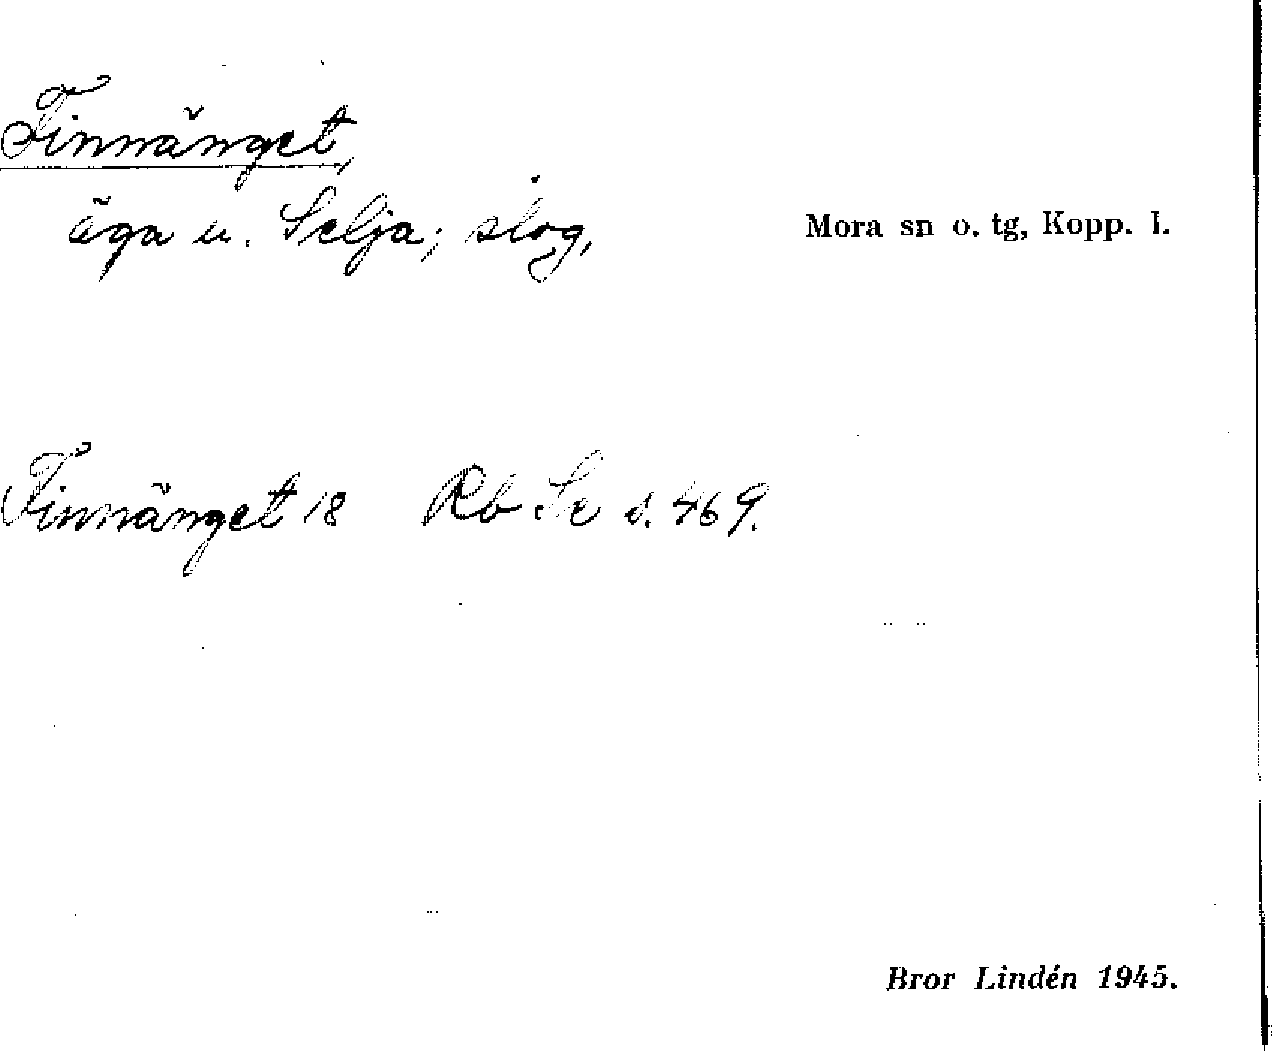 Finnänget,
äga u. Selja; slog,
Mora sn o. tg, Kopp. l.
Finnänget 18 Rb Se s. 469.
Bror Lindén 1945.